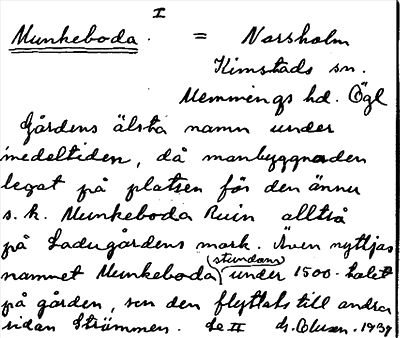 I
Munkeboda. = Norsholm
Kimstads sn.
Memmings hd. Ögl
Gårdens älsta namn under
medeltiden, då manbyggnaden
legat på platsen för den ännu
s. k. Munkeboda Ruin alltså
på Ladugårdens mark. Även nyttjas
namnet Munkeboda stundom under 1500-talet
på gården, sen den flyttats till andra
sidan Strömmen. Se II G. Olsson. 1939